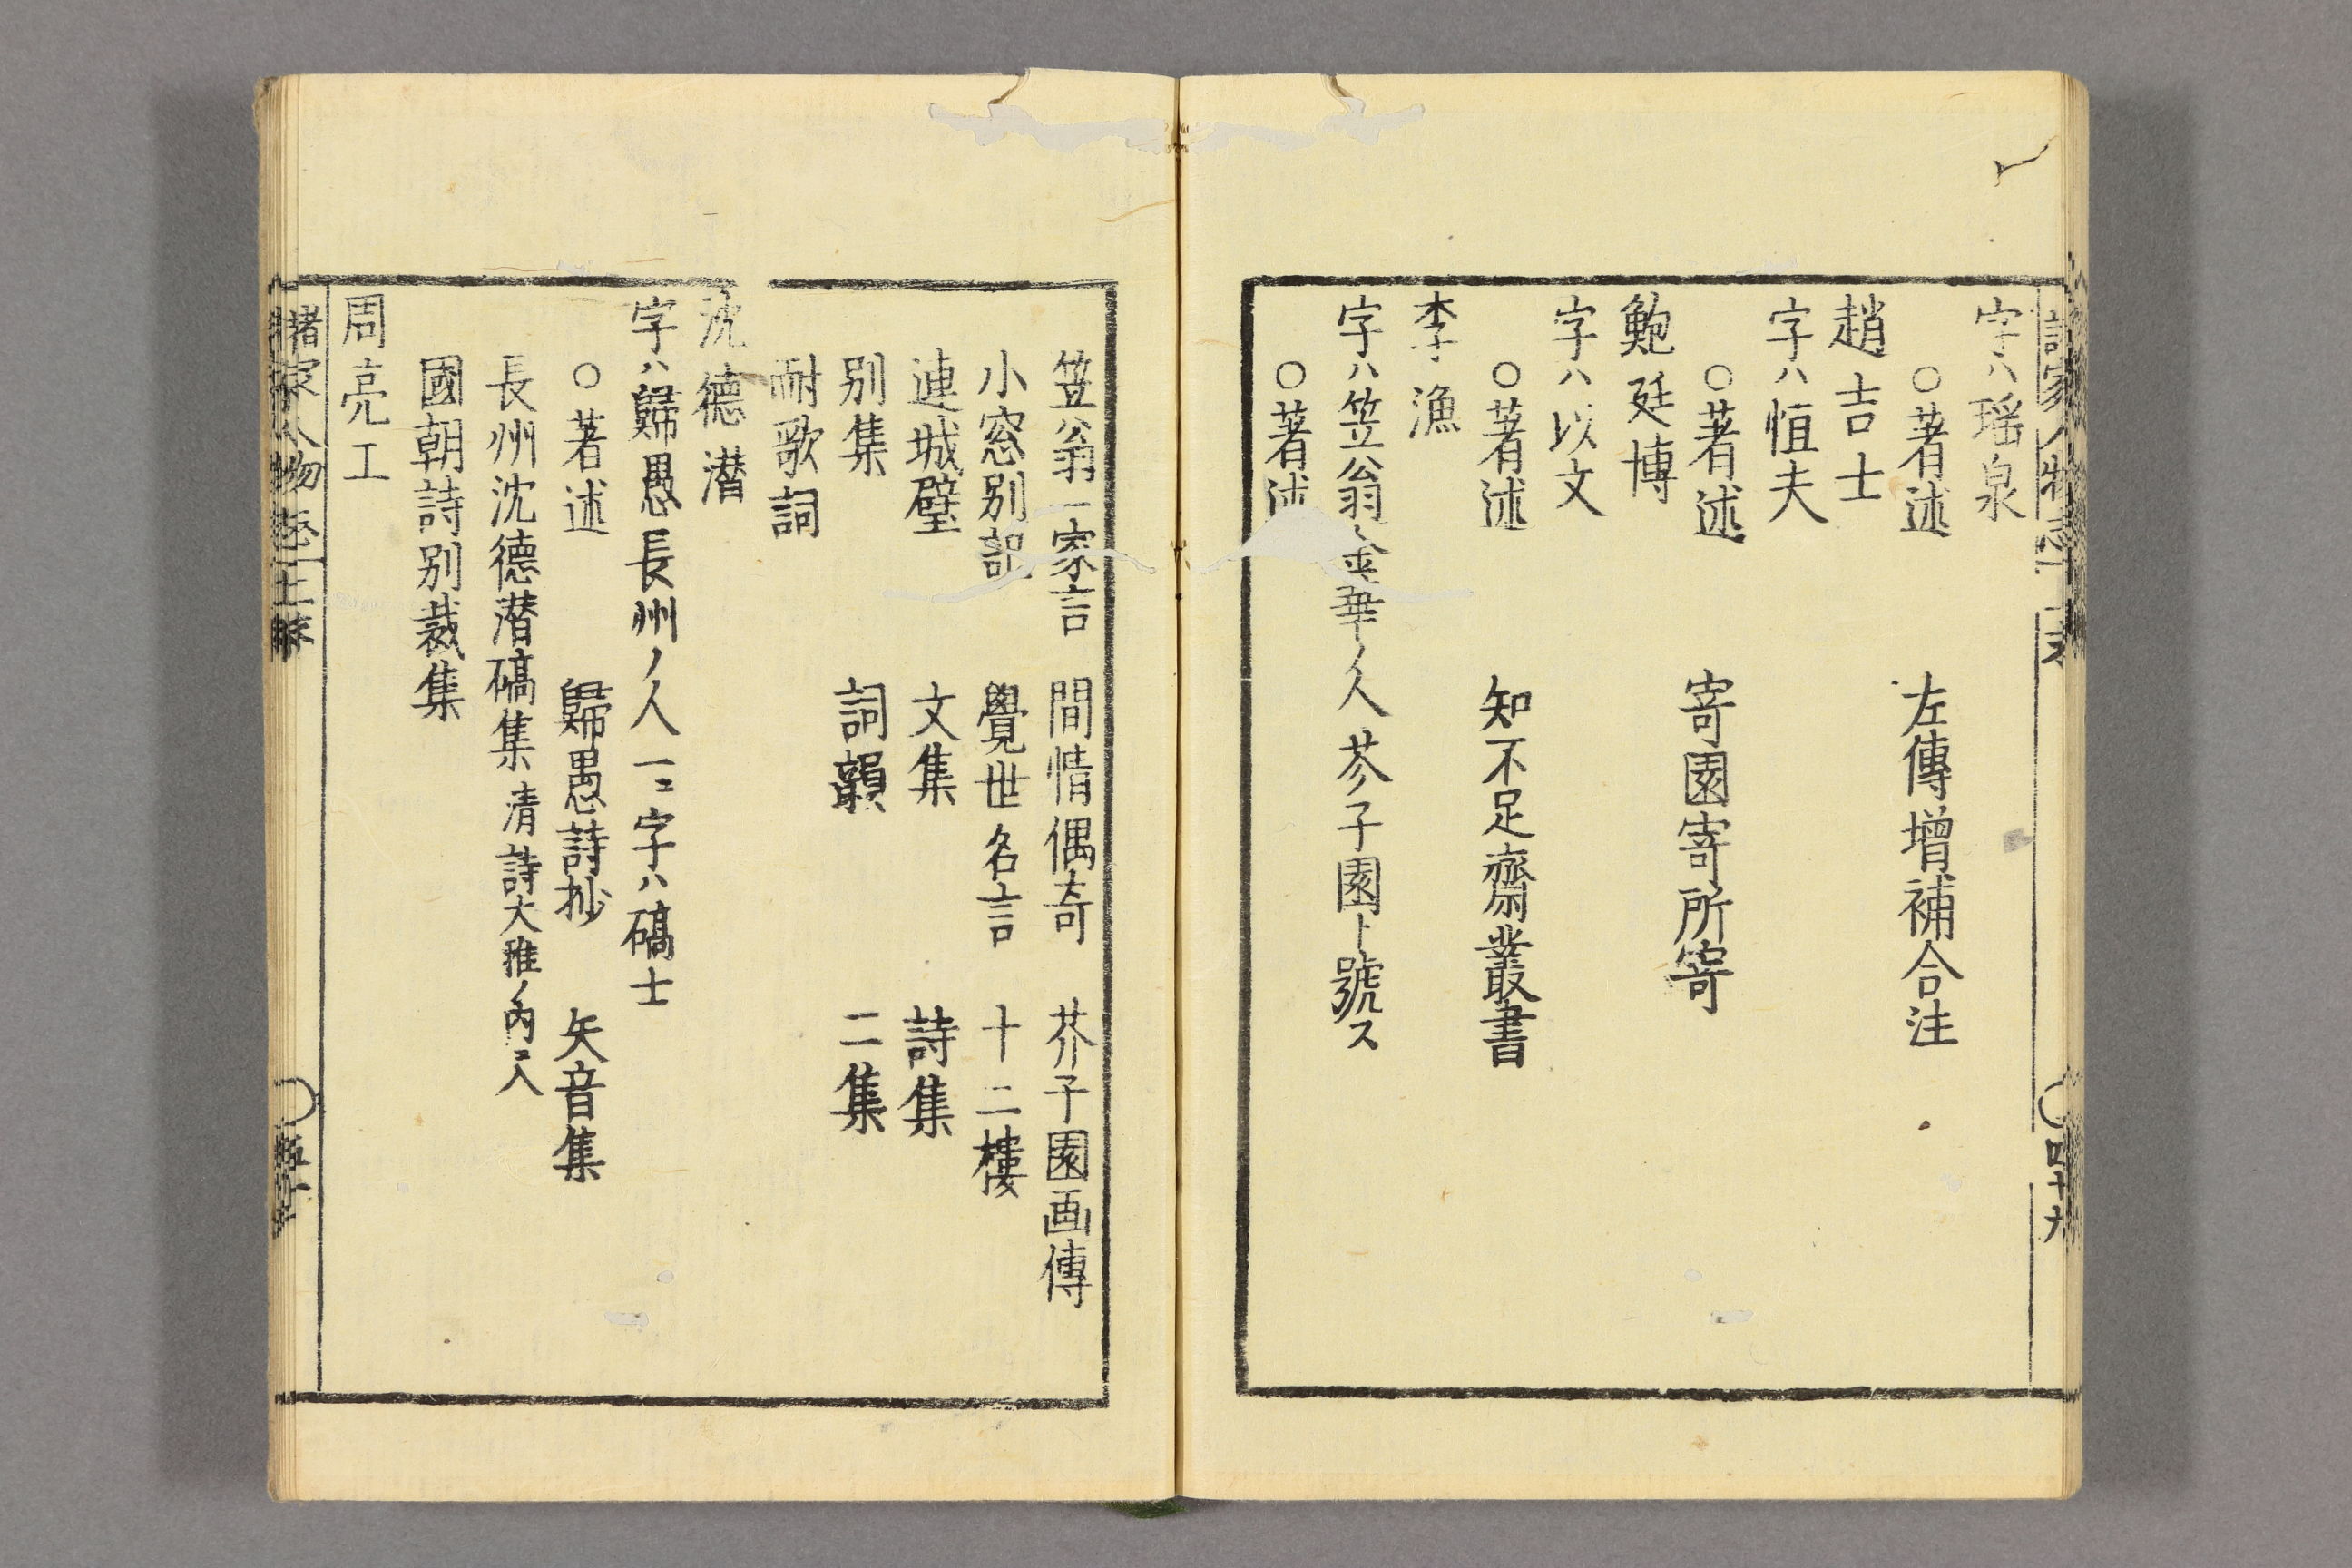 字ハ瑶泉
○著述　左傳增補合注
趙吉士
字ハ恒夫
○著述　寄園寄所寄
鮑廷博
字ハ以文
○著述　知不足齋叢書
李漁
字ハ笠翁金華ノ人芥子園ト號ス
○著述
笠翁一家言　間情偶奇　芥子園画傳
小窓別記　覺世名言　十二樓
連城璧　文集　詩集
別集　詞韻　二集
耐歌詞
沈德潜
字ハ歸愚長州ノ人一ニ字ハ碻士
○著述　歸愚詩抄　矢音集
長州沈德潜碻集清詩大雅ノ内ニ入
國朝詩別裁集
周亮工